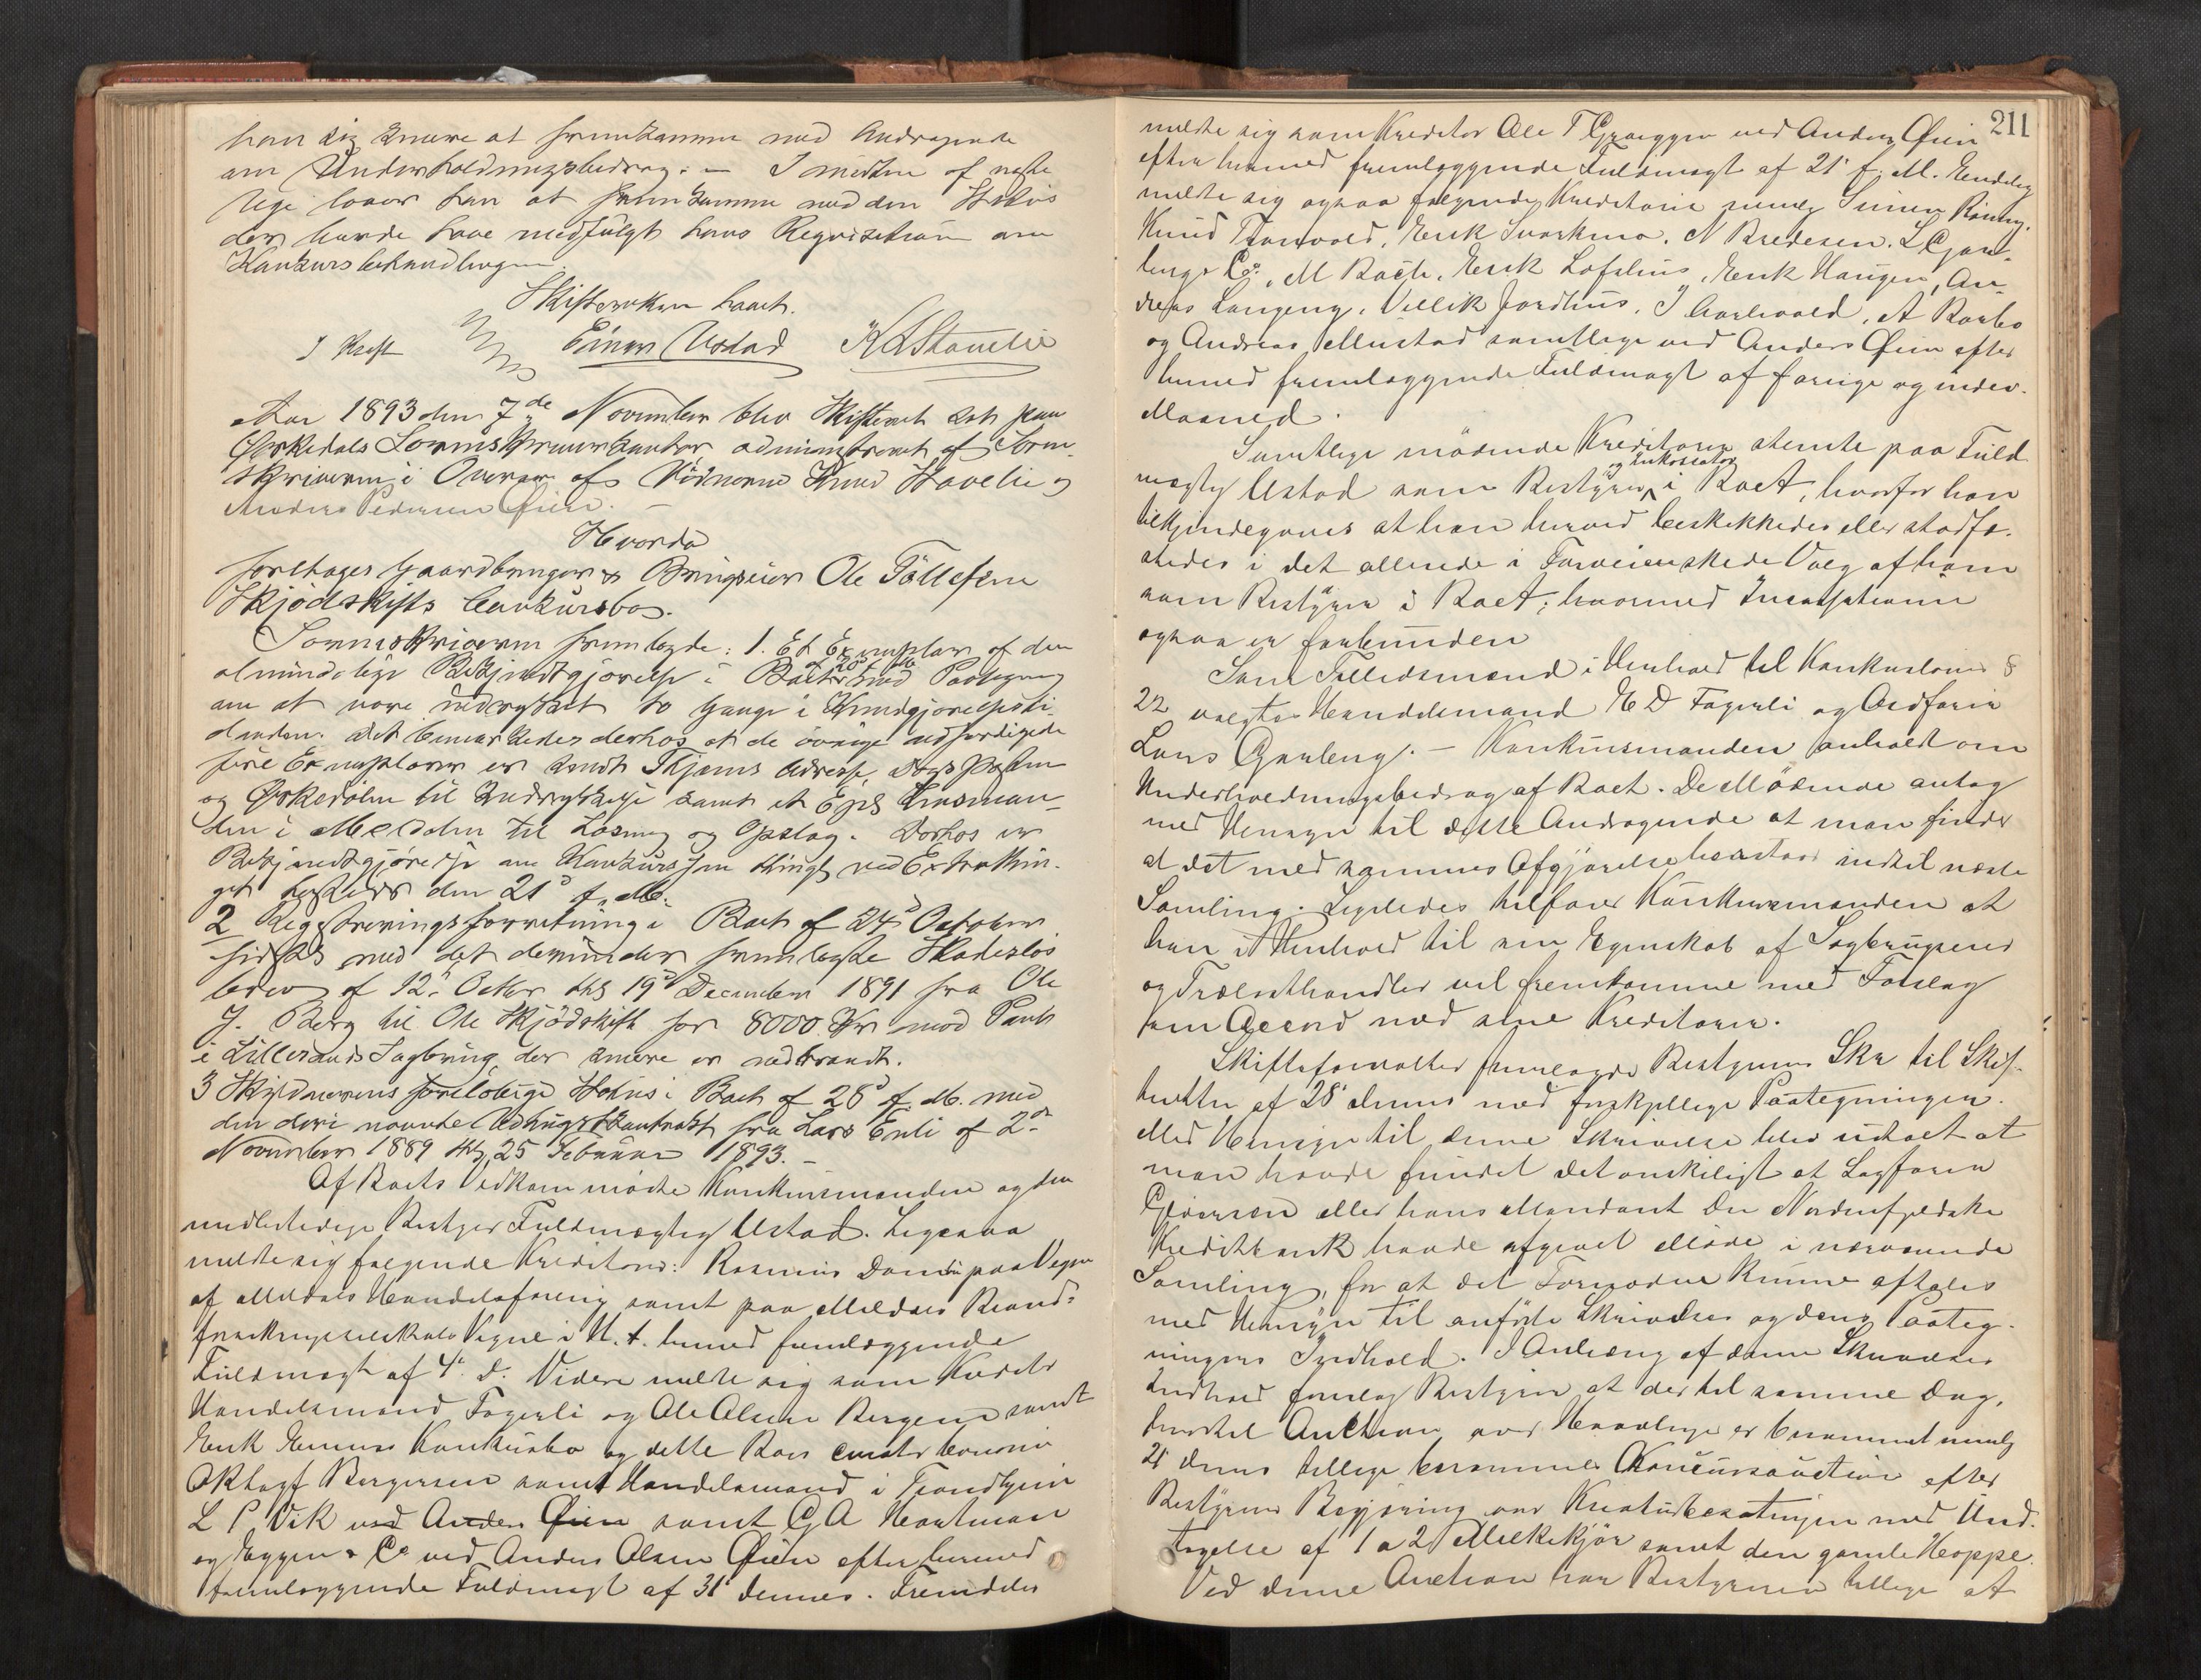 han sig senere at fremkomme med Andragende
om Underholdningsbidrag. — I midten af næste
Uge lover han at fremkomme med den Status
der burde have medfulgt hans Reqvisition om
Konkursbehandlingen.
Skifteretten hævet.
J Kraft Einar Ustad K L Stavelie
Aar 1893 den 7de November blev Skifteret sat paa
Ørkedals Sorenskriverkontor administreret af Soren-
skriveren i Overvær af Vidnerne Knud Stavelie og
Anders Pedersen Øien. —
Hvorda
foretages Gaardbruger & Brugseier Ole Tøllefsen
Skjødskifts Conkursbo.
Sorenskriveren fremlagde: 1. Et Exemplar af den
almindelige Bekjendtgjørelse i Boet af 20d f. M. med Paategning
om at være indrykket to Gange i Kundgjørelsesti-
denden. Det bemærkedes derhos at de øvrige udfærdigede
fire Exemplarer er sendt Thjems Adresse, Dagsposten
og Ørkedølen til Indrykkelse samt et Expl Lensman-
den i Meldalen til Læsning og Opslag. Derhos er
Bekjendtgjørelse om Konkursen thinglæst ved Extrathin-
get herskedes den 21d f. M.
2 Registreringsforretning i Boet af 24d October
sidstl med det derunder fremlagte Skadesløs
brev af 12. Octbr thl 19d December 1891 fra Ole
J. Berg til Ole Skjødskift for 8000 Kr mod Pant
i Lillesands Sagbrug, der senere er nedbrændt.
3 Skyldnerens foreløbige Status i Boet af 28d f. M. med
den deri nævnte Udhugstkontrakt fra Lars Enli af 2den
November 1889 thl 25 Februar 1893. —
Af Boets Vedkommende mødte Konkursmanden og den
midlertidige Bestyrer Fuldmægtig Ustad. Ligesaa
meldte sig følgende Kreditorer: Rasmus paa Vegne
af Meldals Handelsforening samt paa Meldals Brand-
forsikringsselskabs Vegne i H. t. hermed fremlæggende
Fuldmagt af 4. d. Videre meldte sig som Kreditor
Handelsmand Fagerli og Ole Olsen Bergem samt
Erik Konkursbo og dette Boes curator bonorum
Oktagf Bergersen samt Handelsmand i Trondhjem
L P Vik ved Anders Øien samt G A Hartmann
og Eggen & Co ved Anders Olsen Øien efter hermed
fremlæggende Fuldmagt af 31' dennes. Fremdeles
211
meldte sig som Kreditor Ole T Græggen ved Anders Øien
efter hermed fremlæggende Fuldmagt af 21' f. M. Endelig
meldte sig ogsaa følgende Kreditorer nemlig Simen Rønning.
Knud Tronvold, Erik Svorkmo, N Bredesen, L Gjær-
bergs Co., M Bach, Erik Lofshus, Erik Haugen, An-
dreas Langeng, Vellik Jordhus, J Aarlivold, A Rorbo
og Andreas Mustad samtlige ved Anders Øien efter
hermed fremlæggende Fuldmagt af forrige og inder.
Maaned.
Samtlige mødende Kreditorer stemte paa Fuld-
mægtig Ustad som Bestyrer og Inkassator i BoeT, hvorfor han
tilkjendegaves at han herved beskikkedes eller stadfæ-
stedes i det allerede i Forveien skede Valg af ham
som Bestyrer i BoeT; hvormed Incassationen
ogsaa er forbunden
Som Tillidsmænd i Henhold til Konkurslovens §
22 valgtes Handelsmand E D Fagerli og Ordfører
Lars Gjerberg. — Konkursmanden anholdt om
Underholdningsbidrag af Boet. De Mødende antog
med Hensyn til dette Andragende at man finder
at det med sammes Afgjørelse henstaar indtil næste
Samling. Ligeledes tilfører Konkursmanden at
han i Henhold til sin Egenskab af Sagbrugseier
og Trælasthandler vil fremkomme med Forslag
om Accord med sine Kreditorer.
Skifteforvalter fremlagde Bestyrerens Skr til Skif-
teretten af 28' dennes med forskjellige Paategninger.
Med Hensyn til denne Skrivelse blev udtalt at
man havde fundet det ønskeligt at Sagfører
Gløersen eller hans Mandant Den Nordenfjeldske
Kreditbank havde afgivet Møde i nærværende
Samling, for at det Fornødne kunne aftales
med Hensyn til anførte Skrivelses og dens Paateg-
ningers Indhold. I Anledning af denne Skrivelses
Indhold foreslog Bestyreren at der til samme Dag,
hvortil Auction over Haavlinge er berammet nemlig
21' dennes tillige berammes Koncursauction efter
Bestyrerens Begjæring over Kreaturbesætningen med Und-
tagelse af 1 a 2 Melkekjør samt den gamle Hoppe.
Ved denne Auction har Bestyreren tillige at